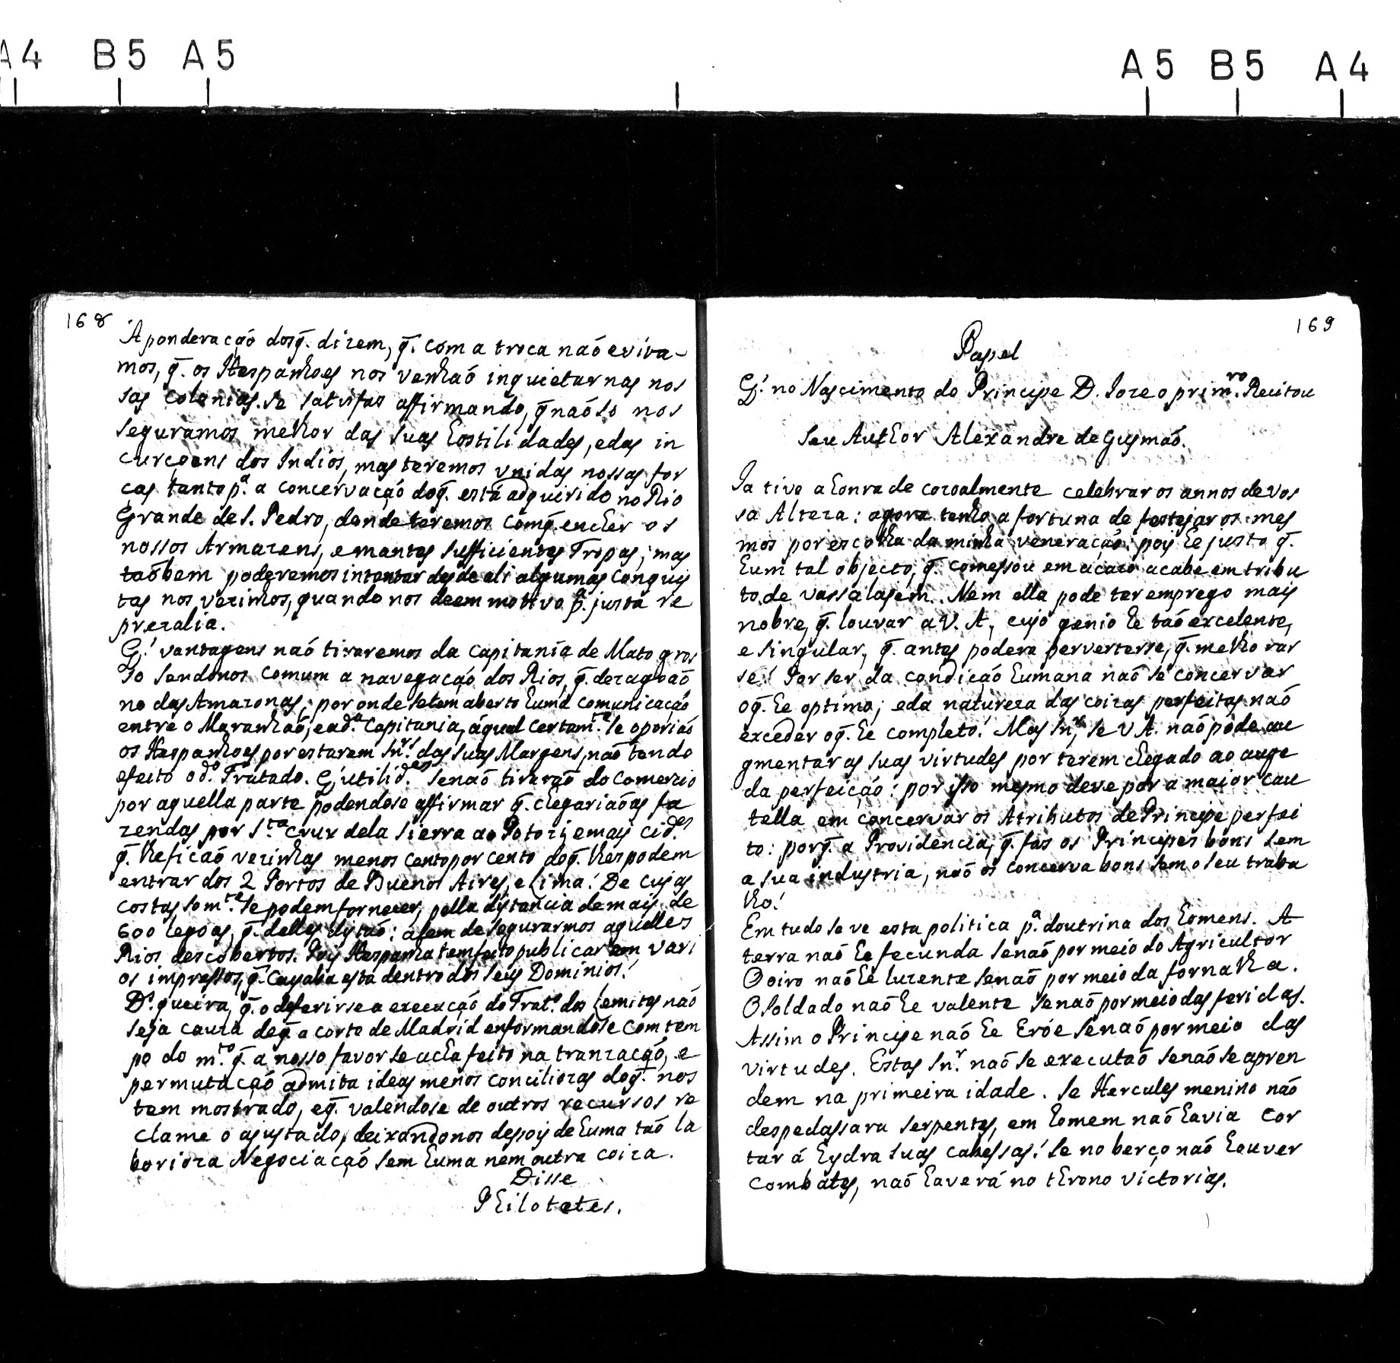 A4 B5 A5
A5 B5 A4
168
A ponderação dosq̃. dizem, q̃. com a troca naõ evita-
mos, q̃. os Hespanhoes nos venhaõ inquietar nas nos
sas colonias. se satisfas affirmando, q̃ naõ só nos
seguramos melhor das suas hostilidades, e das in
curçoens dos Indios, mas teremos unidas nossas for
cas tanto p.ª a concervaçaõ doq̃. está adquirido no Rio
Grande de S. Pedro, donde teremos comq̃. encher os
nossos Armazens, e mantes sufficientes Tropas; mas
taõbem poderemos intentar desde ali algumas Conquis
tas nos vezimos, quando nos deem motivo p.ª justa re
prezalia.
Q.' vantagens naõ tiraremos da Capitania de Mato gros
so sendonos comum a navegaçaõ dos Rios, q̃. dezagoaõ
no das Amazonas; por onde se tem aberto huma comunicaçaõ
entre o Maranhaõ, e ad.ª Capitania, á qual certam.te se oporiaõ
os Hespanhoes por estarem Sn.res das suas Margens, naõ tendo
efeito o d.º Tratado. Q.' utilid.es senaõ tiraraõ do Comercio
por aquella parte podendose affirmar q̃. chegariaõ as fa
zendas por S.ta Crux dela Sierra ao Potozi e mais cid.es
q̃. lhe ficaõ vezinhas menos cento por cento doq̃. lhes podem
entrar dos 2 Portos de Buenos Aires, e Lima! De cujas
costas som.te se podem fornecer, pella distancia de mais de
600 legoas, q̃. delles distaõ: alem de segurarmos aquelles
Rios descobertos. Poy Hespanha tem feito publicar em vari
os impressos, q̃. Cuyaba está dentro dos seus Dominios!
D.s queira, q̃. o deferirse a execução do Trat.º dos Lemites naõ
seja cauza deq̃. a corte de Madrid enformandose com tem
po do m.to q̃. a nosso favor se acha feito na tranzacaõ, e
permutaçaõ admita ideas menos conciliozas doq̃. nos
tem mostrado, eq̃. valendose de outros recursos re
clame o ajustado, deixandonos depois de huma taõ la
borioza Negociaçaõ sem huma nem outra coiza.
Disse
Philotetes.
169
Papel
Q.' no Nascimento do Principe D. Joze o prim.ro Recitou
seu Author Alexandre de Gusmaõ.
Ja tive a honra de cocoalmente celebrar os annos de Vos
sa Alteza: agora tenho a fortuna de festejar os mes
mos por escolha da minha veneraçaõ: pois he justo q̃.
hum tal objecto, q̃. comessou em acazo acabe em tribu
to de vassalagem. Nem ella pode ter emprego mais
nobre, q̃. louvar a V. A., cujo genio he taõ excelente,
e singular, q̃. antes podera perverterse, q̃. melhorar
se! Por ser da condiçaõ humana naõ se concervar
oq̃. he optimo; e da natureza das coizas perfeitas naõ
exceder oq̃. he completo! Mas Sn.r, se V A. naõ póde au
gmentar as suas virtudes por terem chegado ao auge
da perfeiçaõ: por isso mesmo deve por a maior cau
tella em concervar os Atributos de Principe perfei
to: porq̃. a Providencia, q̃. fas os Principes bons sem
a sua industria, naõ os concerva bons sem o seu traba
lho!
Em tudo se ve esta politica p.ª doutrina dos homens. A
terra naõ he fecunda senaõ por meio do Agricultor
O oiro naõ he luzente senaõ por meio da fornalha.
O soldado naõ he valente senaõ por meio das feridas.
Assim o Principe naõ he Eróe senaõ por meio das
virtudes. Estas Sn.r naõ se executaõ senaõ se apren
dem na primeira idade. Se Hercules menino naõ
despedassara serpentes, em homem naõ havia cor
tar á hydra suas cabessas! Se no berço naõ houver
combates, naõ haverá no throno victorias.